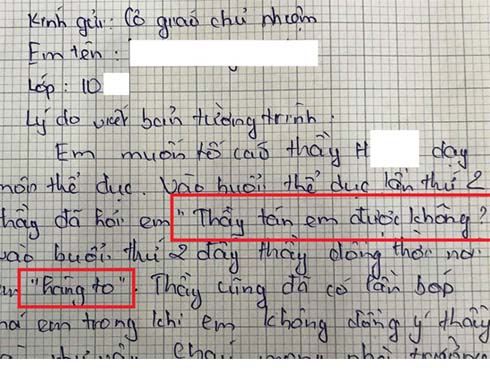 Kính gửi: Cô giáo chủ nhiệm
Em tên:
Lớp: 10
Lý do viết bản tường trình:
Em muốn tố cáo thầy H dạy
môn thể dục. Vào buổi thể dục lần thứ 2
thầy đã hỏi em "Thầy tán em được không?
vào buổi thứ 2 đấy thầy đồng thời nói
"hàng to". Thầy cũng đã có lần bóp
má em trong khi em không đồng ý thầy
nhà trường